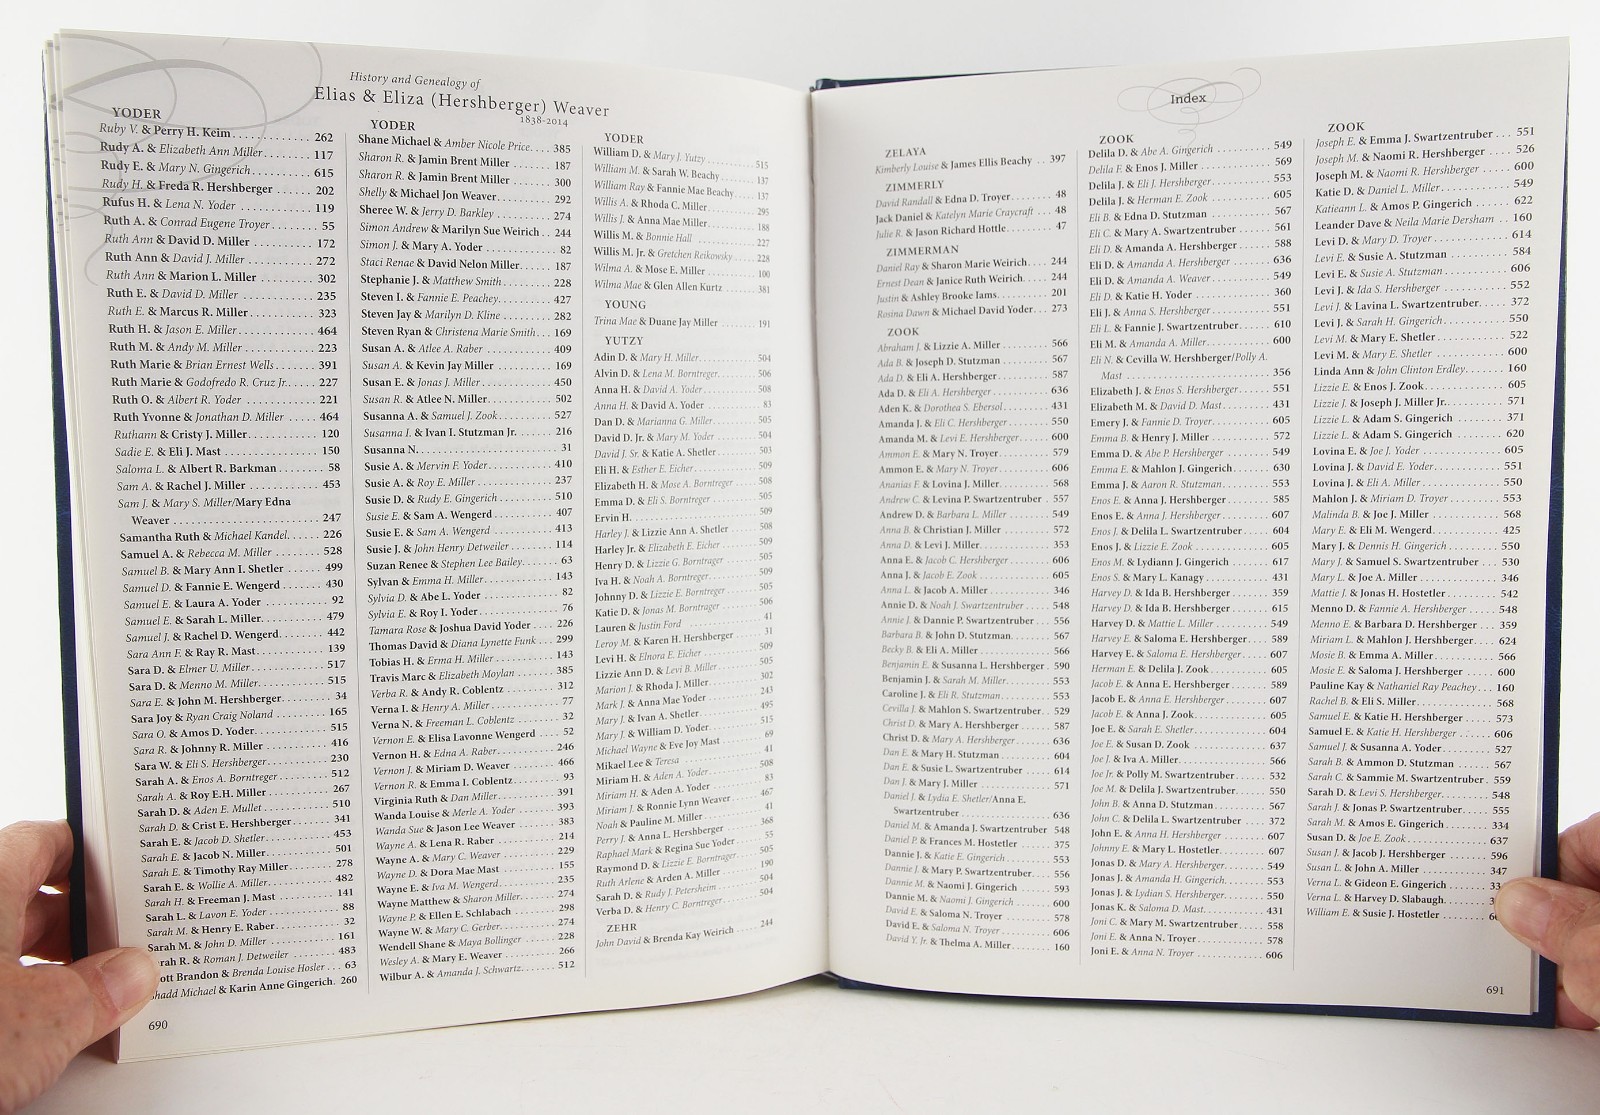 History and Genealogy of
Elias & Eliza (Hershberger) Weaver
1838-2014
YODER
Ruby V. & Perry H. Keim 262
Rudy A. & Elizabeth Ann Miller 117
Rudy E. & Mary N. Gingerich 615
Rudy H. & Freda R. Hershberger 202
Rufus H. & Lena N. Yoder 119
Ruth A. & Conrad Eugene Troyer 55
Ruth Ann & David D. Miller 172
Ruth Ann & David J. Miller 272
Ruth Ann & Marion L. Miller 302
Ruth E. & David D. Miller 235
Ruth E. & Marcus R. Miller 323
Ruth H. & Jason E. Miller 464
Ruth M. & Andy M. Miller 223
Ruth Marie & Brian Ernest Wells 391
Ruth Marie & Godofredo R. Cruz Jr. 227
Ruth O. & Albert R. Yoder 221
Ruth Yvonne & Jonathan D. Miller 464
Ruthann & Cristy J. Miller 120
Sadie E. & Eli J. Mast 150
Saloma L. & Albert R. Barkman 58
Sam A. & Rachel J. Miller 453
Sam J. & Mary S. Miller/Mary Edna
Weaver 247
Samantha Ruth & Michael Kandel 226
Samuel A. & Rebecca M. Miller 528
Samuel B. & Mary Ann I. Shetler 499
Samuel D. & Fannie E. Wengerd 430
Samuel E. & Laura A. Yoder 92
Samuel E. & Sarah L. Miller 479
Samuel J. & Rachel D. Wengerd 442
Sara Ann F. & Ray R. Mast 139
Sara D. & Elmer U. Miller 517
Sara D. & Menno M. Miller 515
Sara E. & John M. Hershberger 34
Sara Joy & Ryan Craig Noland 165
Sara O. & Amos D. Yoder 515
Sara R. & Johnny R. Miller 416
Sara W. & Eli S. Hershberger 230
Sarah A. & Enos A. Borntreger 512
Sarah A. & Roy E.H. Miller 267
Sarah D. & Aden E. Mullet 510
Sarah D. & Crist E. Hershberger 341
Sarah E. & Jacob D. Shetler 453
Sarah E. & Jacob N. Miller 501
Sarah E. & Timothy Ray Miller 278
Sarah E. & Wollie A. Miller 482
Sarah H. & Freeman J. Mast 141
Sarah L. & Lavon E. Yoder 88
Sarah M. & Henry E. Raber 32
Sarah M. & John D. Miller 161
rah R. & Roman J. Detweiler 483
ott Brandon & Brenda Louise Hosler 63
hadd Michael & Karin Anne Gingerich 260
690
YODER
Shane Michael & Amber Nicole Price 385
Sharon R. & Jamin Brent Miller 187
Sharon R. & Jamin Brent Miller 300
Shelly & Michael Jon Weaver 292
Sheree W. & Jerry D. Barkley 274
Simon Andrew & Marilyn Sue Weirich 244
Simon J. & Mary A. Yoder 82
Staci Renae & David Nelon Miller 187
Stephanie J. & Matthew Smith 228
Steven I. & Fannie E. Peachey 427
Steven Jay & Marilyn D. Kline 282
Steven Ryan & Christena Marie Smith 169
Susan A. & Atlee A. Raber 409
Susan A. & Kevin Jay Miller 169
Susan E. & Jonas J. Miller 450
Susan R. & Atlee N. Miller 502
Susanna A. & Samuel J. Zook 527
Susanna I. & Ivan I. Stutzman Jr. 216
Susanna N. 31
Susie A. & Mervin F. Yoder 410
Susie A. & Roy E. Miller 237
Susie D. & Rudy E. Gingerich 510
Susie E. & Sam A. Wengerd 407
Susie E. & Sam A. Wengerd 413
Susie J. & John Henry Detweiler 114
Suzan Renee & Stephen Lee Bailey 63
Sylvan & Emma H. Miller 143
Sylvia D. & Abe L. Yoder 82
Sylvia E. & Roy I. Yoder 76
Tamara Rose & Joshua David Yoder 226
Thomas David & Diana Lynette Funk 299
Tobias H. & Erma H. Miller 143
Travis Marc & Elizabeth Moylan 385
Verba R. & Andy R. Coblentz 312
Verna I. & Henry A. Miller 77
Verna N. & Freeman L. Coblentz 32
Vernon E. & Elisa Lavonne Wengerd 52
Vernon H. & Edna A. Raber 246
Vernon J. & Miriam D. Weaver 466
Vernon R. & Emma I. Coblentz 93
Virginia Ruth & Dan Miller 391
Wanda Louise & Merle A. Yoder 393
Wanda Sue & Jason Lee Weaver 383
Wayne A. & Lena R. Raber 214
Wayne A. & Mary C. Weaver 229
Wayne D. & Dora Mae Mast 155
Wayne E. & Iva M. Wengerd 235
Wayne Matthew & Sharon Miller 274
Wayne P. & Ellen E. Schlabach 298
Wayne W. & Mary C. Gerber 274
Wendell Shane & Maya Bollinger 228
Wesley A. & Mary E. Weaver 266
Wilbur A. & Amanda J. Schwartz 512
YODER
William D. & Mary J. Yutzy 515
William M. & Sarah W. Beachy 137
William Ray & Fannie Mae Beachy 137
Willis A. & Rhoda C. Miller 295
Willis J. & Anna Mae Miller 188
Willis M. & Bonnie Hall 227
Willis M. Jr. & Gretchen Reikowsky 228
Wilma A. & Mose E. Miller 100
Wilma Mae & Glen Allen Kurtz 381
YOUNG
Trina Mae & Duane Jay Miller 191
YUTZY
Adin D. & Mary H. Miller 504
Alvin D. & Lena M. Borntreger 506
Anna H. & David A. Yoder 508
Anna H. & David A. Yoder 83
Dan D. & Marianna G. Miller 505
David D. Jr. & Mary M. Yoder 504
David J. Sr. & Katie A. Shetler 503
Eli H. & Esther E. Eicher 509
Elizabeth H. & Mose A. Borntreger 508
Emma D. & Eli S. Borntreger 505
Ervin H. 509
Harley J. & Lizzie Ann A. Shetler 508
Harley Jr. & Elizabeth E. Eicher 509
Henry D. & Lizzie G. Borntrager 505
Iva H. & Noah A. Borntreger 509
Johnny D. & Lizzie E. Borntreger 505
Katie D. & Jonas M. Borntrager 506
Lauren & Justin Ford 41
Leroy M. & Karen H. Hershberger 31
Levi H. & Elnora E. Eicher 509
Lizzie Ann D. & Levi B. Miller 505
Marion J. & Rhoda J. Miller 302
Mark J. & Anna Mae Yoder 243
Mary J. & Ivan A. Shetler 495
Mary J. & William D. Yoder 515
Michael Wayne & Eve Joy Mast 69
Mikael Lee & Teresa 41
Miriam H. & Aden A. Yoder 508
Miriam H. & Aden A. Yoder 83
Miriam J. & Ronnie Lynn Weaver 467
Noah & Pauline M. Miller 41
Perry J. & Anna L. Hershberger 368
Raphael Mark & Regina Sue Yoder 55
Raymond D. & Lizzie E. Borntrager 505
Ruth Arlene & Arden A. Miller 190
Sarah D. & Rudy J. Petersheim 504
Verba D. & Henry C. Borntreger 504
ZEHR
John David & Brenda Kay Weirich 244
Index
ZELAYA
Kimberly Louise & James Ellis Beachy 397
ZIMMERLY
David Randall & Edna D. Troyer 48
Jack Daniel & Katelyn Marie Craycraft 48
Julie R. & Jason Richard Hottle 47
ZIMMERMAN
Daniel Ray & Sharon Marie Weirich 244
Ernest Dean & Janice Ruth Weirich 244
Justin & Ashley Brooke Iams 201
Rosina Dawn & Michael David Yoder 273
ZOOK
Abraham J. & Lizzie A. Miller 566
Ada B. & Joseph D. Stutzman 567
Ada D. & Eli A. Hershberger 587
Ada D. & Eli A. Hershberger 636
Aden K. & Dorothea S. Ebersol 431
Amanda J. & Eli C. Hershberger 550
Amanda M. & Levi E. Hershberger 600
Ammon E. & Mary N. Troyer 579
Ammon E. & Mary N. Troyer 606
Ananias F. & Lovina J. Miller 568
Andrew C. & Levina P. Swartzentruber 557
Andrew D. & Barbara L. Miller 549
Anna B. & Christian J. Miller 572
Anna D. & Levi J. Miller 353
Anna E. & Jacob C. Hershberger 606
Anna J. & Jacob E. Zook 605
Anna L. & Jacob A. Miller 346
Annie D. & Noah J. Swartzentruber 548
Annie J. & Dannie P. Swartzentruber 556
Barbara B. & John D. Stutzman 567
Becky B. & Eli A. Miller 566
Benjamin E. & Susanna L. Hershberger 590
Benjamin J. & Sarah M. Miller 553
Caroline J. & Eli R. Stutzman 553
Cevilla J. & Mahlon S. Swartzentruber 529
Christ D. & Mary A. Hershberger 587
Christ D. & Mary A. Hershberger 636
Dan E. & Mary H. Stutzman 604
Dan E. & Susie L. Swartzentruber 614
Dan J. & Mary J. Miller 571
Daniel J. & Lydia E. Shetler/Anna E.
Swartzentruber 636
Daniel M. & Amanda J. Swartzentruber 548
Daniel P. & Frances M. Hostetler 375
Dannie J. & Katie E. Gingerich 553
Dannie J. & Mary P. Swartzentruber 556
Dannie M. & Naomi J. Gingerich 593
Dannie M. & Naomi J. Gingerich 600
David E. & Saloma N. Troyer 578
David E. & Saloma N. Troyer 606
David Y. Jr. & Thelma A. Miller 160
ZOOK
Delila D. & Abe A. Gingerich 549
Delila F. & Enos J. Miller 569
Delila J. & Eli J. Hershberger 553
Delila J. & Herman E. Zook 605
Eli B. & Edna D. Stutzman 567
Eli C. & Mary A. Swartzentruber 561
Eli D. & Amanda A. Hershberger 588
Eli D. & Amanda A. Hershberger 636
Eli D. & Amanda A. Weaver 549
Eli D. & Katie H. Yoder 360
Eli J. & Anna S. Hershberger 551
Eli L. & Fannie J. Swartzentruber 610
Eli M. & Amanda A. Miller 600
Eli N. & Cevilla W. Hershberger/Polly A.
Mast 356
Elizabeth J. & Enos S. Hershberger 551
Elizabeth M. & David D. Mast 431
Emery J. & Fannie D. Troyer 605
Emma B. & Henry J. Miller 572
Emma D. & Abe P. Hershberger 549
Emma E. & Mahlon J. Gingerich 630
Emma J. & Aaron R. Stutzman 553
Enos E. & Anna J. Hershberger 585
Enos E. & Anna J. Hershberger 607
Enos J. & Delila L. Swartzentruber 604
Enos J. & Lizzie E. Zook 605
Enos M. & Lydiann J. Gingerich 617
Enos S. & Mary L. Kanagy 431
Harvey D. & Ida B. Hershberger 359
Harvey D. & Ida B. Hershberger 615
Harvey D. & Mattie L. Miller 549
Harvey E. & Saloma E. Hershberger 589
Harvey E. & Saloma E. Hershberger 607
Herman E. & Delila J. Zook 605
Jacob E. & Anna E. Hershberger 589
Jacob E. & Anna E. Hershberger 607
Jacob E. & Anna J. Zook 605
Joe E. & Sarah E. Shetler 604
Joe E. & Susan D. Zook 637
Joe J. & Iva A. Miller 566
Joe Jr. & Polly M. Swartzentruber 532
Joe M. & Delila J. Swartzentruber 550
John B. & Anna D. Stutzman 567
John C. & Delila L. Swartzentruber 372
John E. & Anna H. Hershberger 607
Johnny E. & Mary L. Hostetler 607
Jonas D. & Mary A. Hershberger 549
Jonas J. & Amanda H. Gingerich 553
Jonas J. & Lydian S. Hershberger 550
Jonas K. & Saloma D. Mast 431
Joni C. & Mary M. Swartzentruber 558
Joni E. & Anna N. Troyer 578
Joni E. & Anna N. Troyer 606
ZOOK
Joseph E. & Emma J. Swartzentruber 551
Joseph M. & Naomi R. Hershberger 526
Joseph M. & Naomi R. Hershberger 600
Katie D. & Daniel L. Miller 549
Katieann L. & Amos P. Gingerich 622
Leander Dave & Neila Marie Dersham 160
Levi D. & Mary D. Troyer 614
Levi E. & Susie A. Stutzman 584
Levi E. & Susie A. Stutzman 606
Levi J. & Ida S. Hershberger 552
Levi J. & Lavina L. Swartzentruber 372
Levi J. & Sarah H. Gingerich 550
Levi M. & Mary E. Shetler 522
Levi M. & Mary E. Shetler 600
Linda Ann & John Clinton Erdley 160
Lizzie E. & Enos J. Zook 605
Lizzie J. & Joseph J. Miller Jr. 571
Lizzie L. & Adam S. Gingerich 371
Lizzie L. & Adam S. Gingerich 620
Lovina E. & Joe J. Yoder 605
Lovina J. & David E. Yoder 551
Lovina J. & Eli A. Miller 550
Mahlon J. & Miriam D. Troyer 553
Malinda B. & Joe J. Miller 568
Mary E. & Eli M. Wengerd 425
Mary J. & Dennis H. Gingerich 550
Mary J. & Samuel S. Swartzentruber 530
Mary L. & Joe A. Miller 346
Mattie J. & Jonas H. Hostetler 542
Menno D. & Fannie A. Hershberger 548
Menno E. & Barbara D. Hershberger 359
Miriam L. & Mahlon J. Hershberger 624
Mosie B. & Emma A. Miller 566
Mosie E. & Saloma J. Hershberger 600
Pauline Kay & Nathaniel Ray Peachey 160
Rachel B. & Eli S. Miller 568
Samuel E. & Katie H. Hershberger 573
Samuel E. & Katie H. Hershberger 606
Samuel J. & Susanna A. Yoder 527
Sarah B. & Ammon D. Stutzman 567
Sarah C. & Sammie M. Swartzentruber 559
Sarah D. & Levi S. Hershberger 548
Sarah J. & Jonas P. Swartzentruber 555
Sarah M. & Amos E. Gingerich 334
Susan D. & Joe E. Zook 637
Susan J. & Jacob J. Hershberger 596
Susan L. & John A. Miller 347
Verna L. & Gideon E. Gingerich 33
Verna L. & Harvey D. Slabaugh 3
William E. & Susie J. Hostetler 6
691